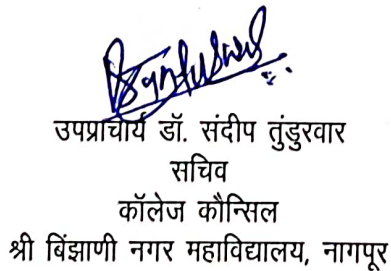 उपप्राचार्य डॉ. संदीप तुंडुरवार
सचिव
कॉलेज कौन्सिल
श्री बिंझाणी नगर महाविद्यालय, नागपूर